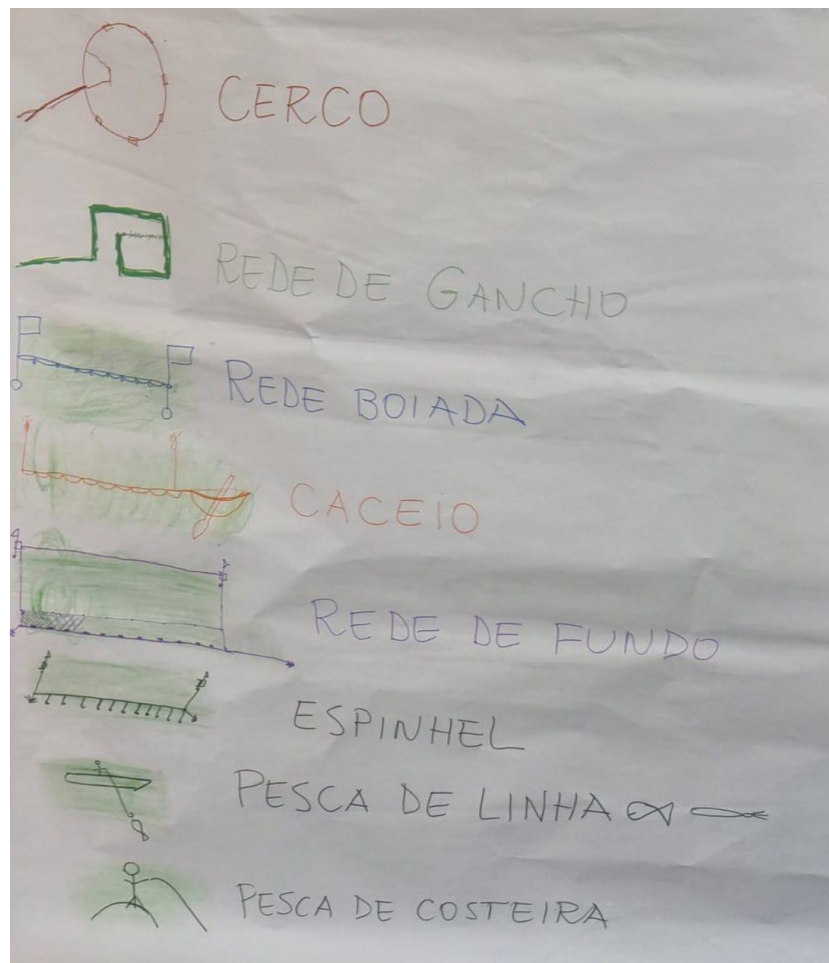 CERCO
REDE DE GANCHO
REDE BOIADA
CACEIO
REDE DE FUNDO
ESPINHEL
PESCA DE LINHA
PESCA DE COSTEIRA